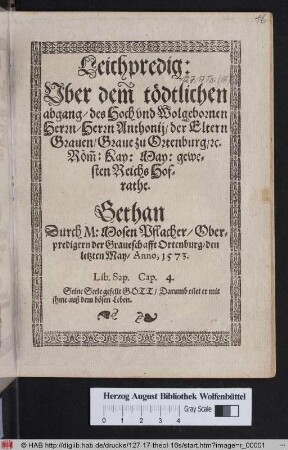 46
Leichpredig:
Vber dem tödtlichen
abgang / des Hoch vnd Wolgebornen
Herrn / Herrn Anthonij / der Eltern
Grauen / Graue zu Ortenburg / ꝛc.
Röm: Kay: May: gewe-
sten Reichs Hof-
rathe.
Gethan
Durch M: Mosen Pflacher / Ober-
predigern der Graueschafft Ortenburg / den
letzten May / Anno, 1573.
Lib. Sap. Cap. 4.
Seine Seele gefelle GOTT / Darumb eilet er mit
jhme auß dem bösen Leben.
Herzog August Bibliothek Wolfenbüttel
Gray Scale
© HAB http://diglib.hab.de/drucke/127-17-theol-16s/start.htm?image=r_00001